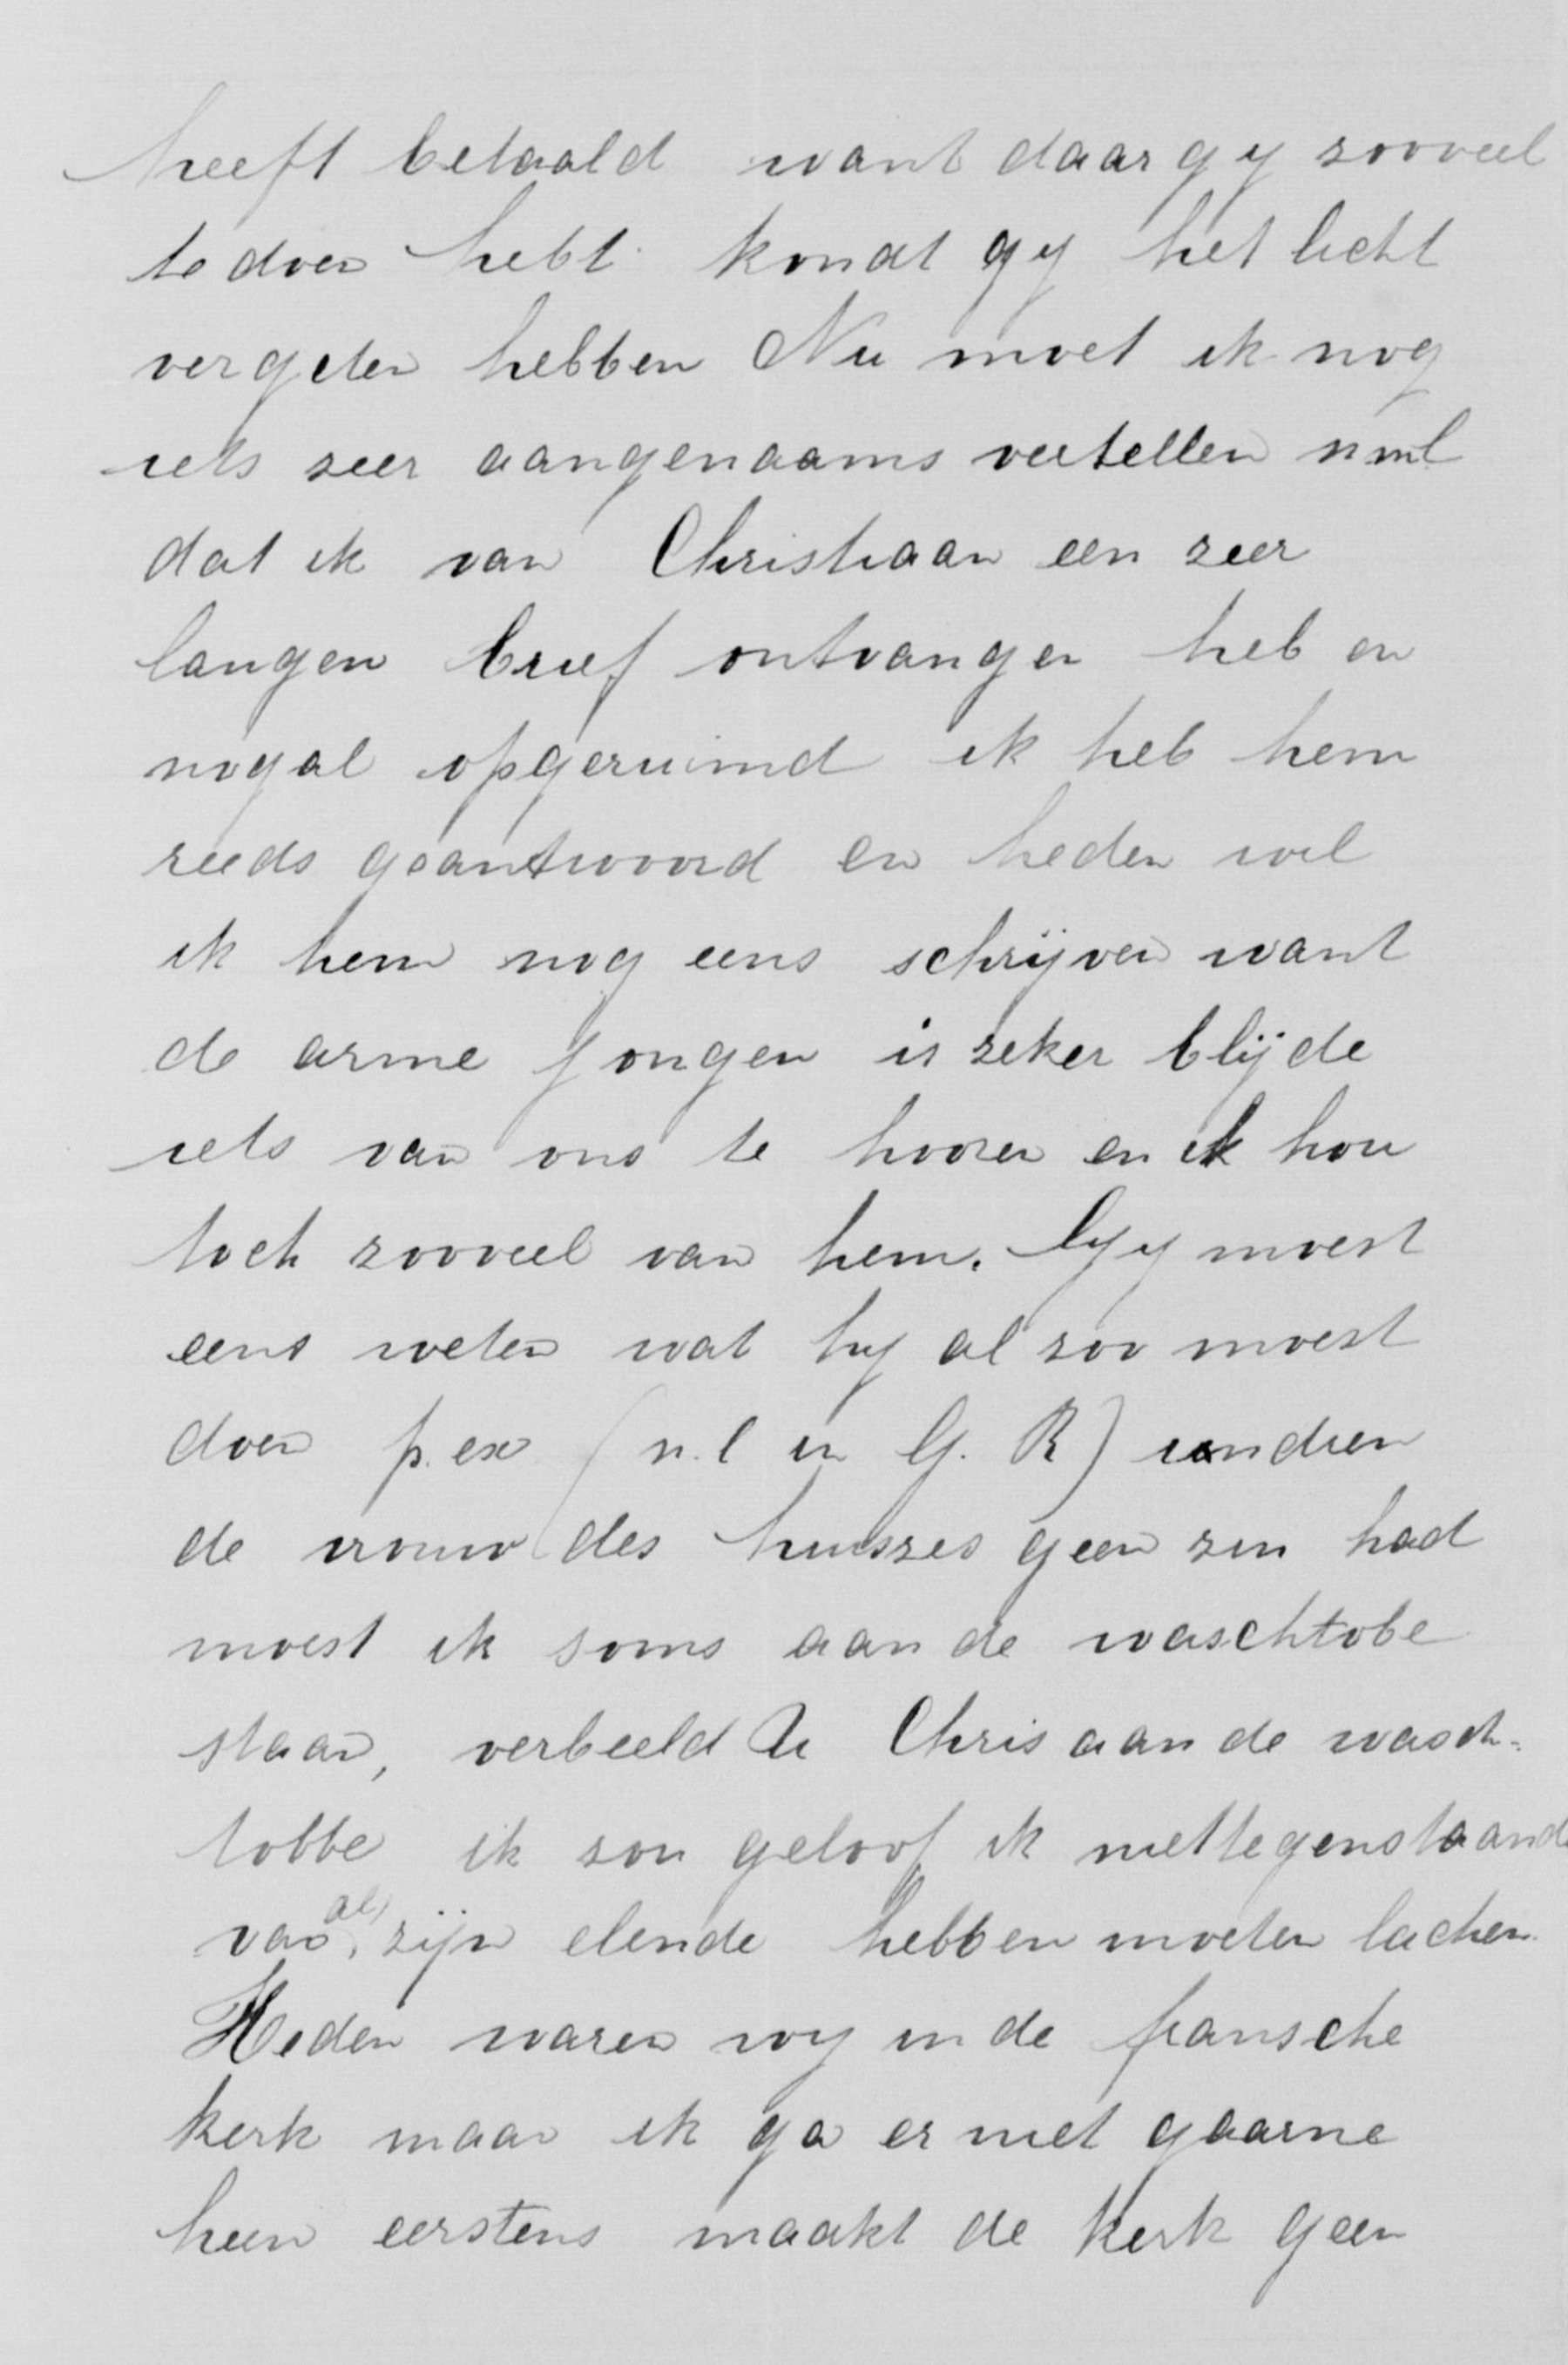 heeft betaald want daar gy zooveel
te doen hebt kondt gy het licht
vergeten hebben Nu moet ik nog
iets zeer aangenaams vertellen nml
dat ik van Christiaan een zeer
langen brief ontvangen heb en
nogal opgeruimd ik heb hem
reeds geantwoord en heden wil
ik hem nog eens schrijven want
de arme jongen is zeker blijde
iets van ons te hooren en ik hou
toch zooveel van hem. Gy moest
eens weten wat hy al zoo moest
doen p. ex (n.l in G. R) indien
de vrouw des huiszes geen zin had
moest ik soms aan de waschtobe
staan, verbeeld U Chris aan de wasch-
tobbe ik zou geloof ik niettegenstaande
van al zijn elende hebben moeten lachen.
Heden waren wy in de fransche
kerk maar ik ga er niet gaarne
heen eerstens maakt de kerk geen